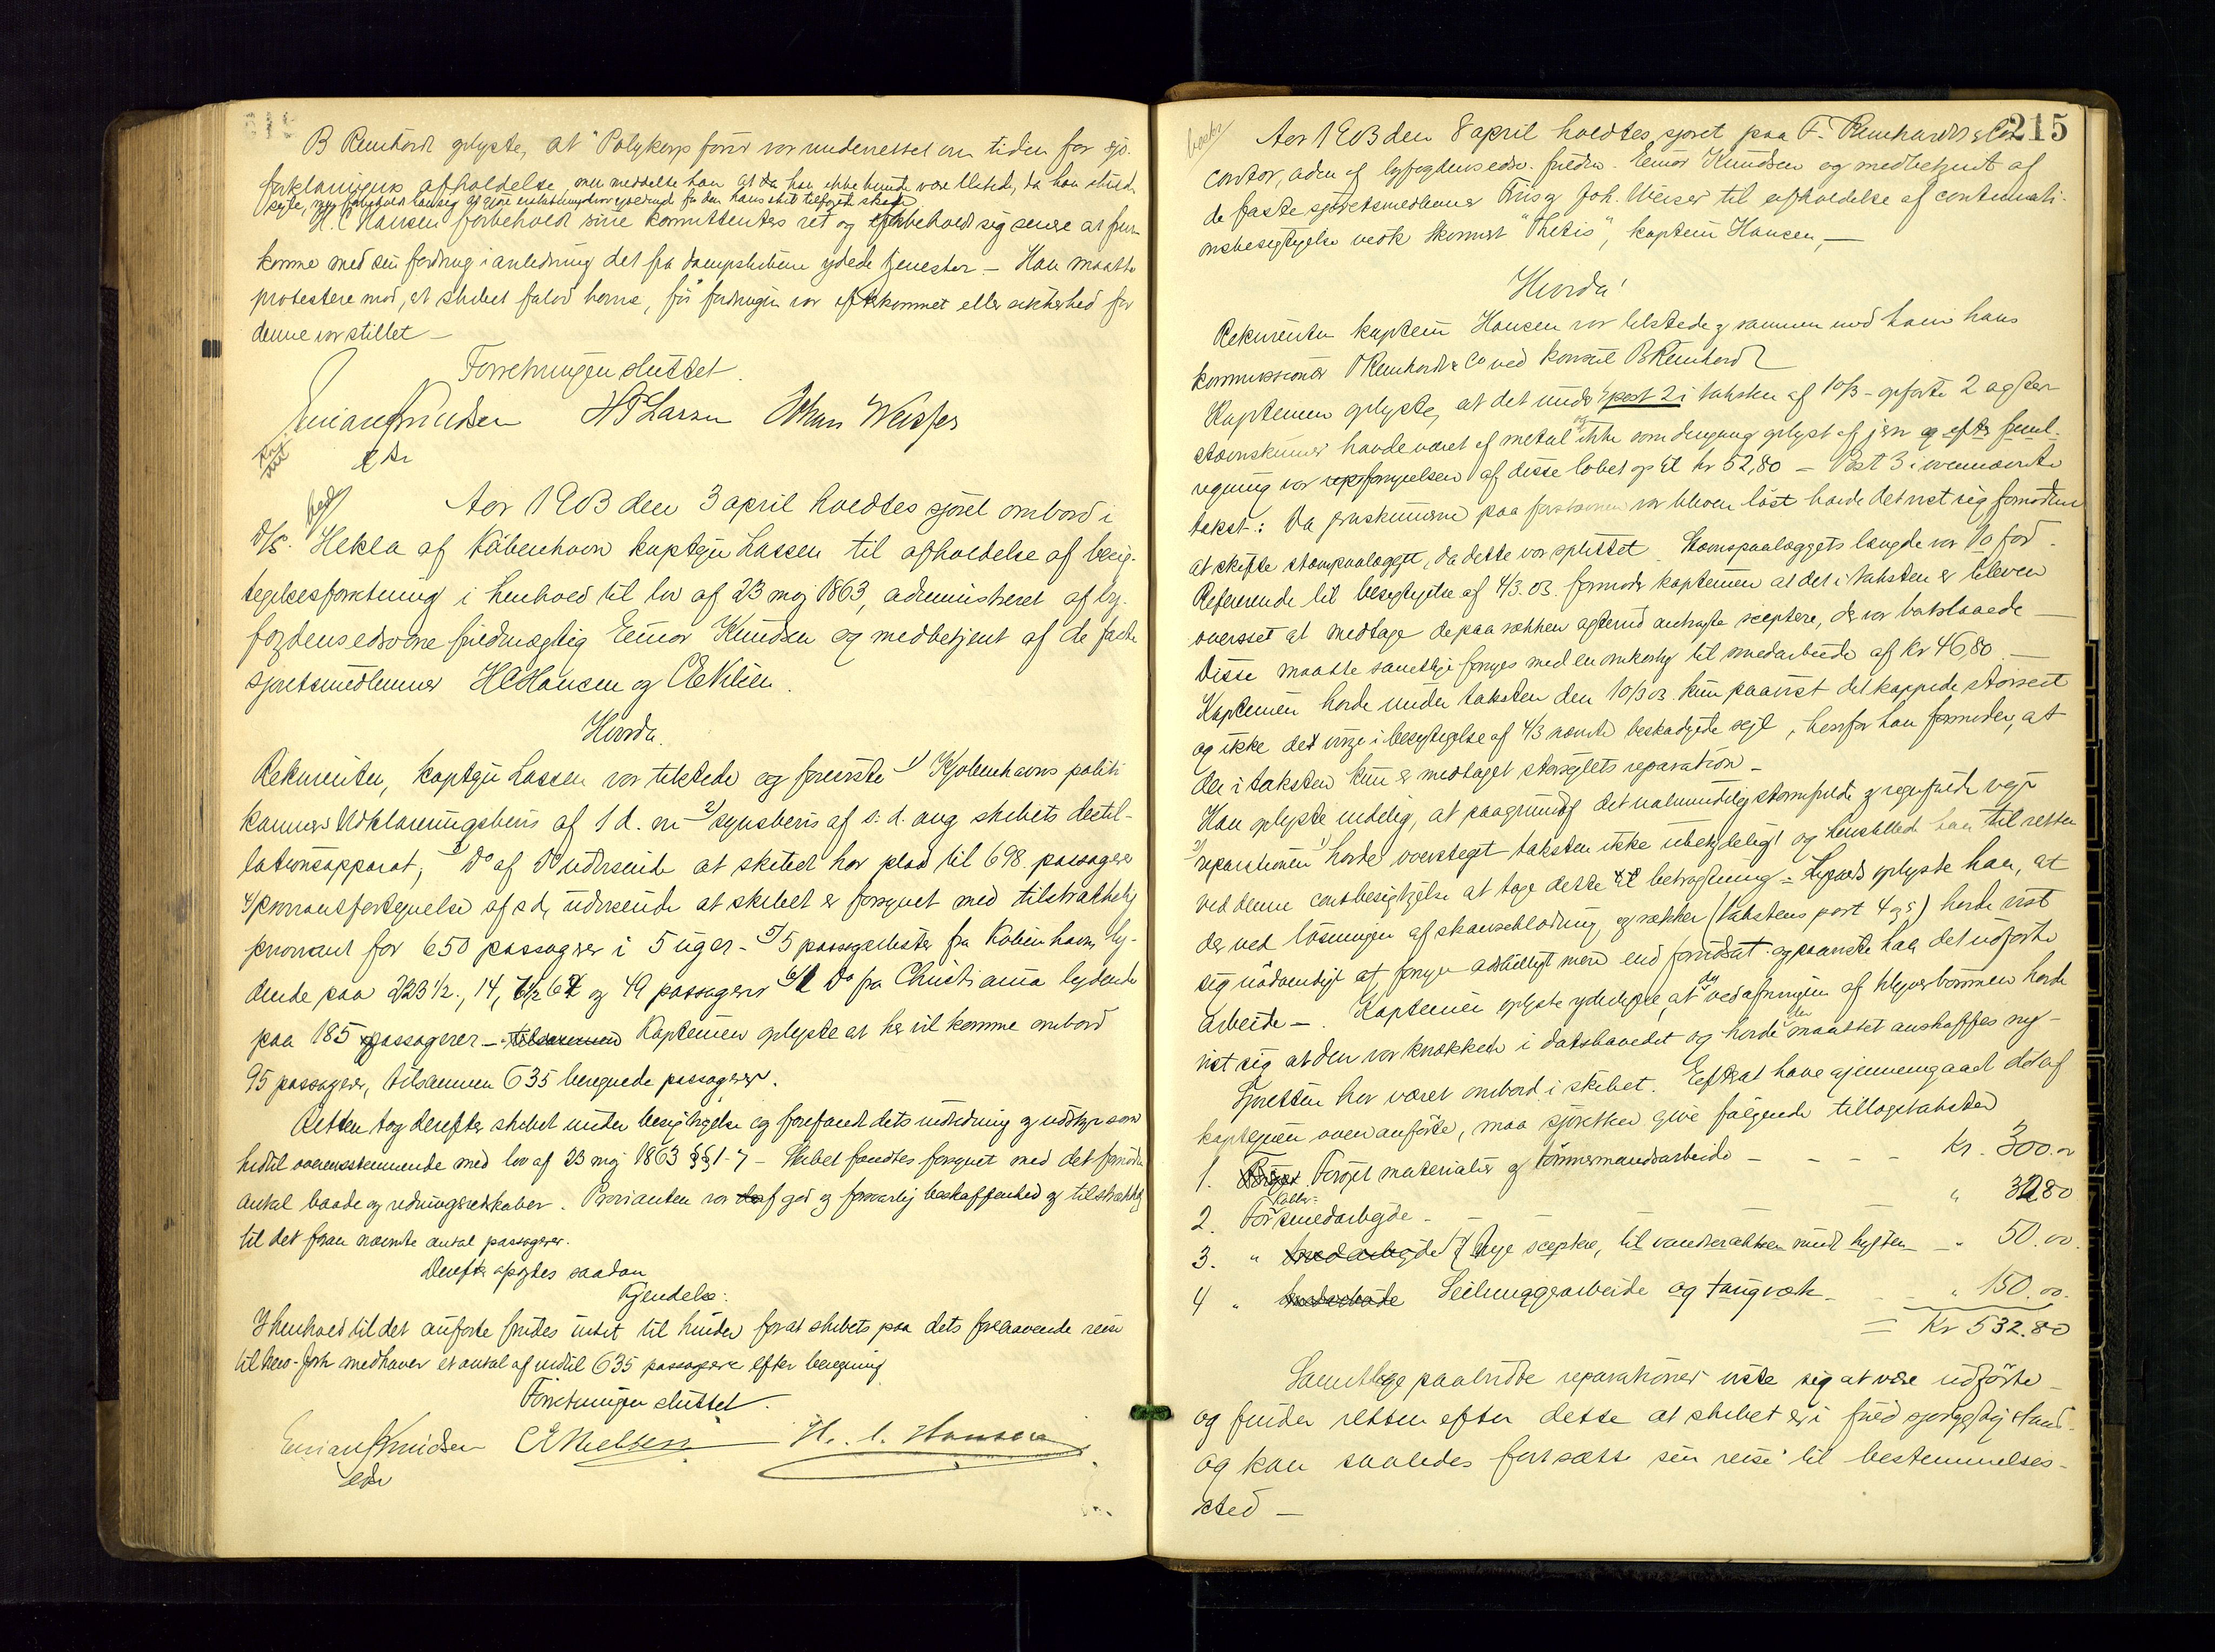 B Reinhardt oplyste, at "Polykarps fører var underrettet om tiden for sjø-
forklaringens afholdelse, men meddelte han at da han ikke kunde være tilsted, da han skulde
sejle, men forbeholdt han sig at gjøre erstatningskrav gjældende for den hans skib tilføjede skade
H. C Hansen forbeholdt sine kommittenters ret og forbeholdt sig senere at frem-
komme med sin fordring i anledning det fra dampskibene ydede tjenester. – Han maatte
protestere mod, at skibet forlod havnen, før fordringen var efterkommet eller sikkerhed for
denne var stillet –
Forretningen sluttet.
Einar Knudsen HP Larsen Johan Weisser
edsv
Aar 1903 den 3 april holdtes sjøret ombord i
D/S. Hekla af København kaptejn Lassen til afholdelse af besig-
tigelsesforretning i henhold til lov af 23 maj 1863, administreret af by-
fogdens edsvorne fuldmægtig Einar Knudsen og medbetjent af de faste
sjøretsmedlemmer HC Hansen og CE Nilsen.
Hvorda.
Rekvirenten, kaptejn Lassen var tilstede og foreviste 1) Kjøbenhavns politi
kammers Udklareringsbevis af 1 d. m 2) synsbevis af s. d. ang skibets destil-
lationsapparat; 3 Do af Do udvisende at skibet har plads til 698 passagerer
4) proviantfortegnelse af s d, udvisende at skibet er forsynet med tilstrækkelig
proviant for 650 passagerer i 5 uger – 5) 5 passagerlister fra København ly-
dende paa 223 1/2, 14, 7 1/2 67 og 49 passagerer 6) 1 Do fra Christiania lydende
paa 185 passagerer – tilsammen Kaptejnen oplyste at her vil komme ombord
95 passagerer, tilsammen 635 beregnede passagerer.
Retten tog derefter skibet under besigtigelse og forefandt dets indredning og udstyr som
hidtil overensstemmende med lov af 23 maj 1863 §§ 1-7 – Skibet fandtes forsynet med det fornødne
antal baade og redningsredskaber. Provianten var af god og forsvarlig beskaffenhed og tilstrækkelig
til det foran nævnte antal passagerer.
Derefter afsagdes saadan
Kjendelse:
I henhold til det anførte findes intet til hinder for at skibets paa dets forehavende reise
til New-York medhaver et antal af indtil 635 passagerer efter beregning
Forretningen sluttet.
Einar Knudsen CE Nielsen H. C. Hansen
edsv
215
Aar 1903 den 8 april holdtes sjøret paa F. Reinhardt & Cos
contor, adm af byfogdens edsv. fuldm. Einar Knudsen og medbetjent af
de faste sjøretsmedlemmer Friis og Joh. Weiser til afholdelse af continuati-
onsbesigtigelse vedk skonnert "Thetis", kaptein Hansen, –
Hvorda!
Rekvirenten kaptein Hansen var tilstede og sammen med ham hans
kommissionær F Reinhardt & Co ved konsul B Reinhardt
Kapteinen oplyste, at det under post 2 i taksten af 10/3 – opførte 2 agter
stævnskinner havde været af metal og ikke som dengang oplyst af jern og efter freml.
regning var fornyelsen af disse løbet op til kr 52,80 – Post 3 i ovennævnte
takst: Da jernskinnerne paa forstævnen var bleven løst havde det vist sig fornødent
at skifte stævnpaalægget, da dette var splittet. Stævnpaalæggets længde var 10 fod.
Refererende til besigtigelse af 4/3. 03. formoder kapteinen at det i taksten er bleven
overset at medtage de paa rækken agterud anbragte sceptere, der var bøkslaaede –
Disse maatte samtlige fornyes med en omkostning til smedarbeide af kr 46,80. –
Kapteinen havde under taksten den 10/3 03 kun paavist det kappede storseil
og ikke det øvrige i besigtigelse af 4/3 nævnte beskadigede sejl, hvorfor han formoder, at
der i taksten kun er medtaget storsejlets reparation –
Han oplyste endelig, at paagrund af det ualmindelig stormfulde og regnfulde vejr
reparationen havde oversteget taksten ikke ubetydeligt og henstillede han til retten
ved denne contbesigtigelse at tage dette til betragtning. – Ligeledes oplyste han, at
der ved løsningen af skanseklædning og rækker (takstens post 4 og 5) havde vist
sig nødvendigt at fornye adskilligt mere end forudsat og paaviste han det udførte
arbeide –. Kapteinen oplyste yderligere, at da vedafrivningen af klyverbommen havde
vist sig at den var knækket i dækshovedet og havde den maattet anskaffes ny –
Sjøretten har været ombord i skibet. Efterat have gjennemgaaet det af
kapteinen ovenanførte, maa sjøretten give følgende tillægstaksten
1. Forøget materialer og tømmermandsarbeide – – – – Kr. 300.00
2. For kobbersmedarbejde – – – – " 32.80
3. " smedarbejde af nye sceptre, til vandrækken rundt hytten – " 50.00.
4 " smedarbeide Seilmagerarbeide og taugværk – – " 150.00.
= Kr 532.80
Samtlige paabudte reparationer viste sig at være udførte
og finder retten efter dette at skibet er i fuld sjødygtig stand
og kan saaledes fortsætte sin reise til bestemmelses-
sted –